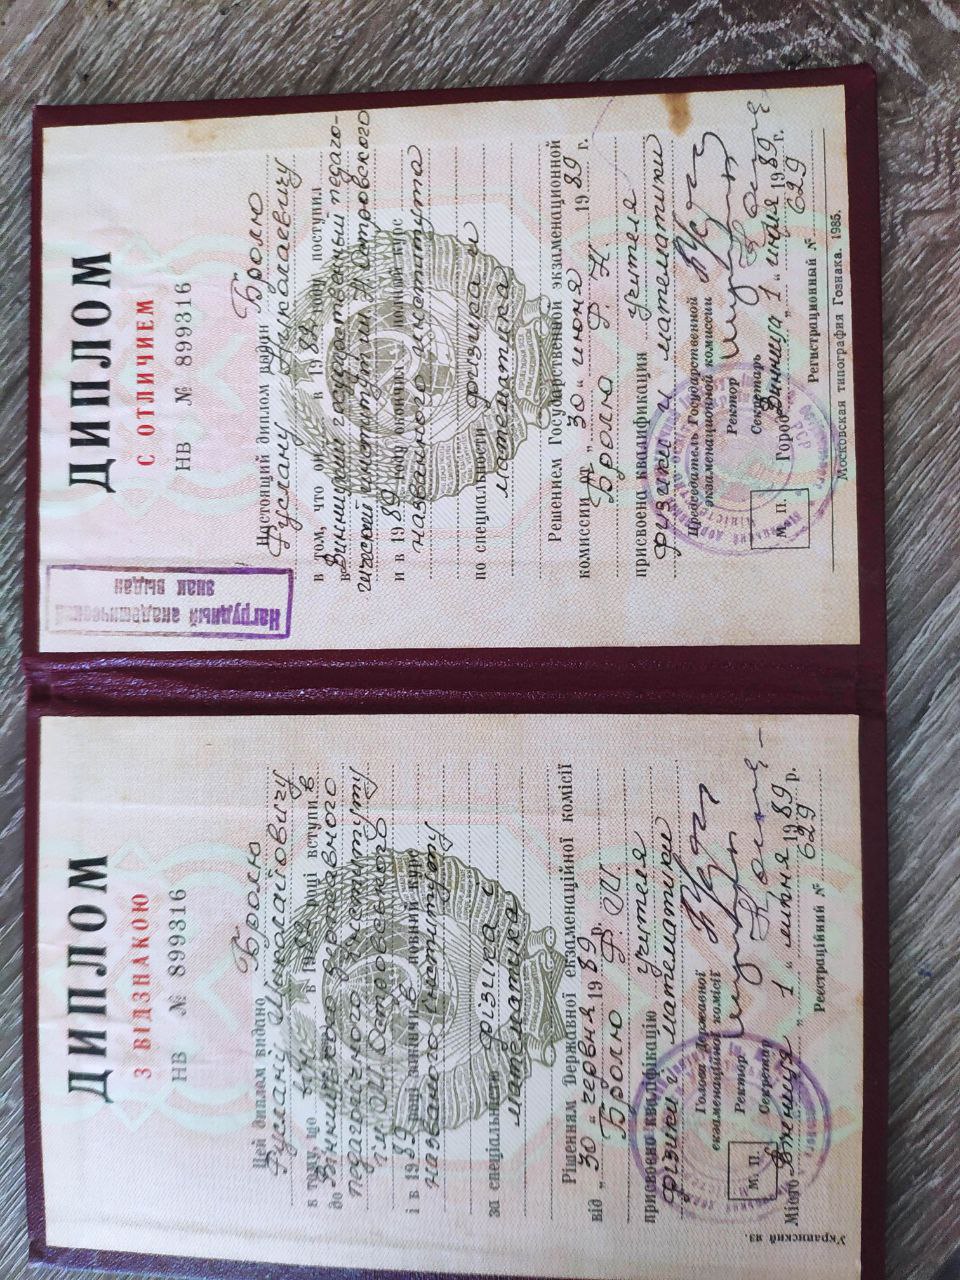 ДИПЛОМ
З ВІДЗНАКОЮ
НВ № 899316
Цей диплом видано Бролю
Руслану Миколайовичу
в тому, що він в 1982 році вступив
до Вінницького державного
педагогічного інституту
ім. М. Островського
і в 1989 році закінчив повний курс
названого інституту
за спеціальністю фізика і
математика
Рішенням Державної екзаменаційної комісії
від „30“ червня 1989 р.
Бролю Р. М.
присвоєно кваліфікацію учителя
фізики і математики
Голова Державної
екзаменаційної комісії
Ректор
Секретар
М. П.
Місто Вінниця „1“ липня 1989 р.
Реєстраційний № 629
Украинский яз.
Нагрудный академический
знак выдан
ДИПЛОМ
С ОТЛИЧИЕМ
НВ № 899316
Настоящий диплом выдан Бролю
Руслану Николаевичу
в том, что он в 1982 году поступил
в Винницкий государственный педаго-
гический институт им. Н. Островского
и в 1989 году окончил полный курс
названного института
по специальности физика и
математика
Решением Государственной экзаменационной
комиссии от „30“ июня 1989 г.
Бролю Р. Н.
присвоена квалификация учителя
физики и математики
Председатель Государственной
экзаменационной комиссии
Ректор
Секретарь
М. П.
Город Винница „1“ июля 1989 г.
Регистрационный № 629
Московская типография Гознака. 1985.